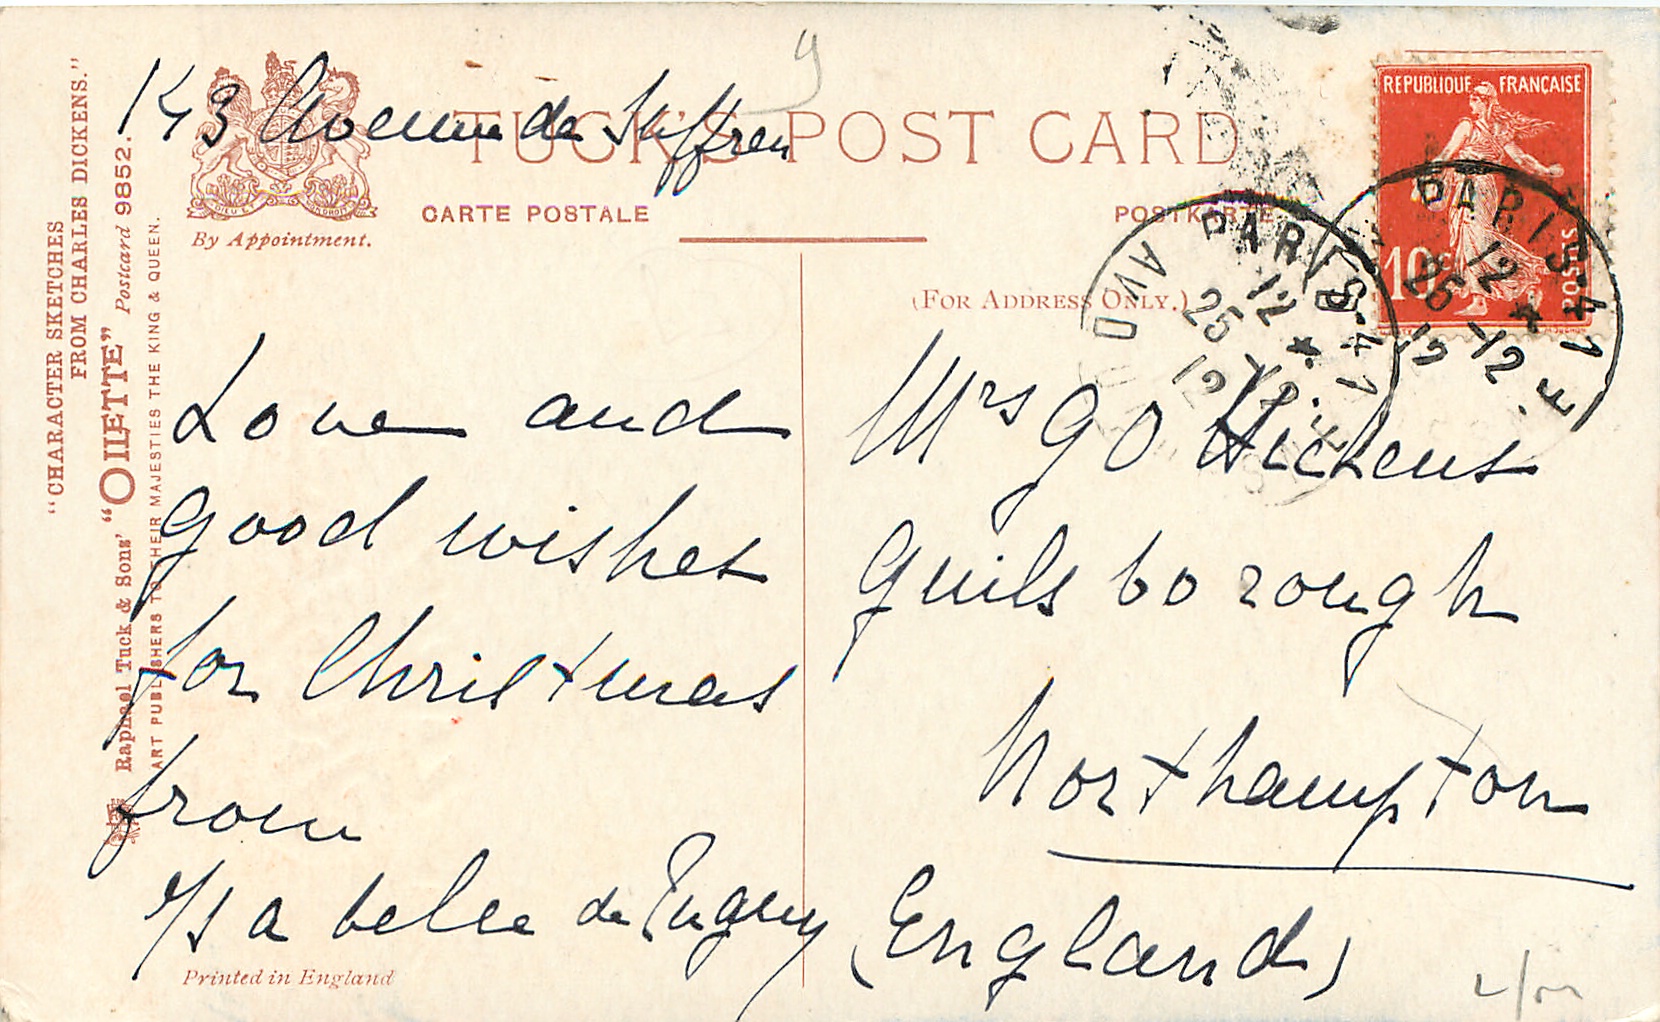 143 Avenue de Suffren
TUCK'S POST CARD
CARTE POSTALE
POSTKARTE
By Appointment.
(FOR ADDRESS ONLY.)
"CHARACTER SKETCHES
FROM CHARLES DICKENS."
Raphael Tuck & Sons' "OILETTE" Postcard 9852.
ART PUBLISHERS TO THEIR MAJESTIES THE KING & QUEEN.
Love and
Good wishes
for Christmas
from
Isabelle de
Printed in England
Mrs G O Hickens
Guilsborough
Northampton
(England)
REPUBLIQUE FRANÇAISE
10c
POSTES
PARIS-41
12 *
25-12
12
PARIS-41
12 *
26-12
12